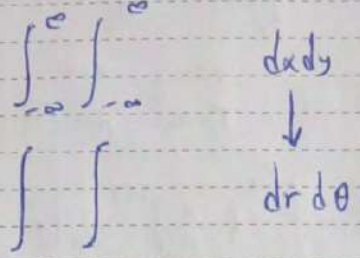 ∫_{-∞}^{∞} ∫_{-∞}^{∞} dxdy
↓
∫ ∫ dr dθ